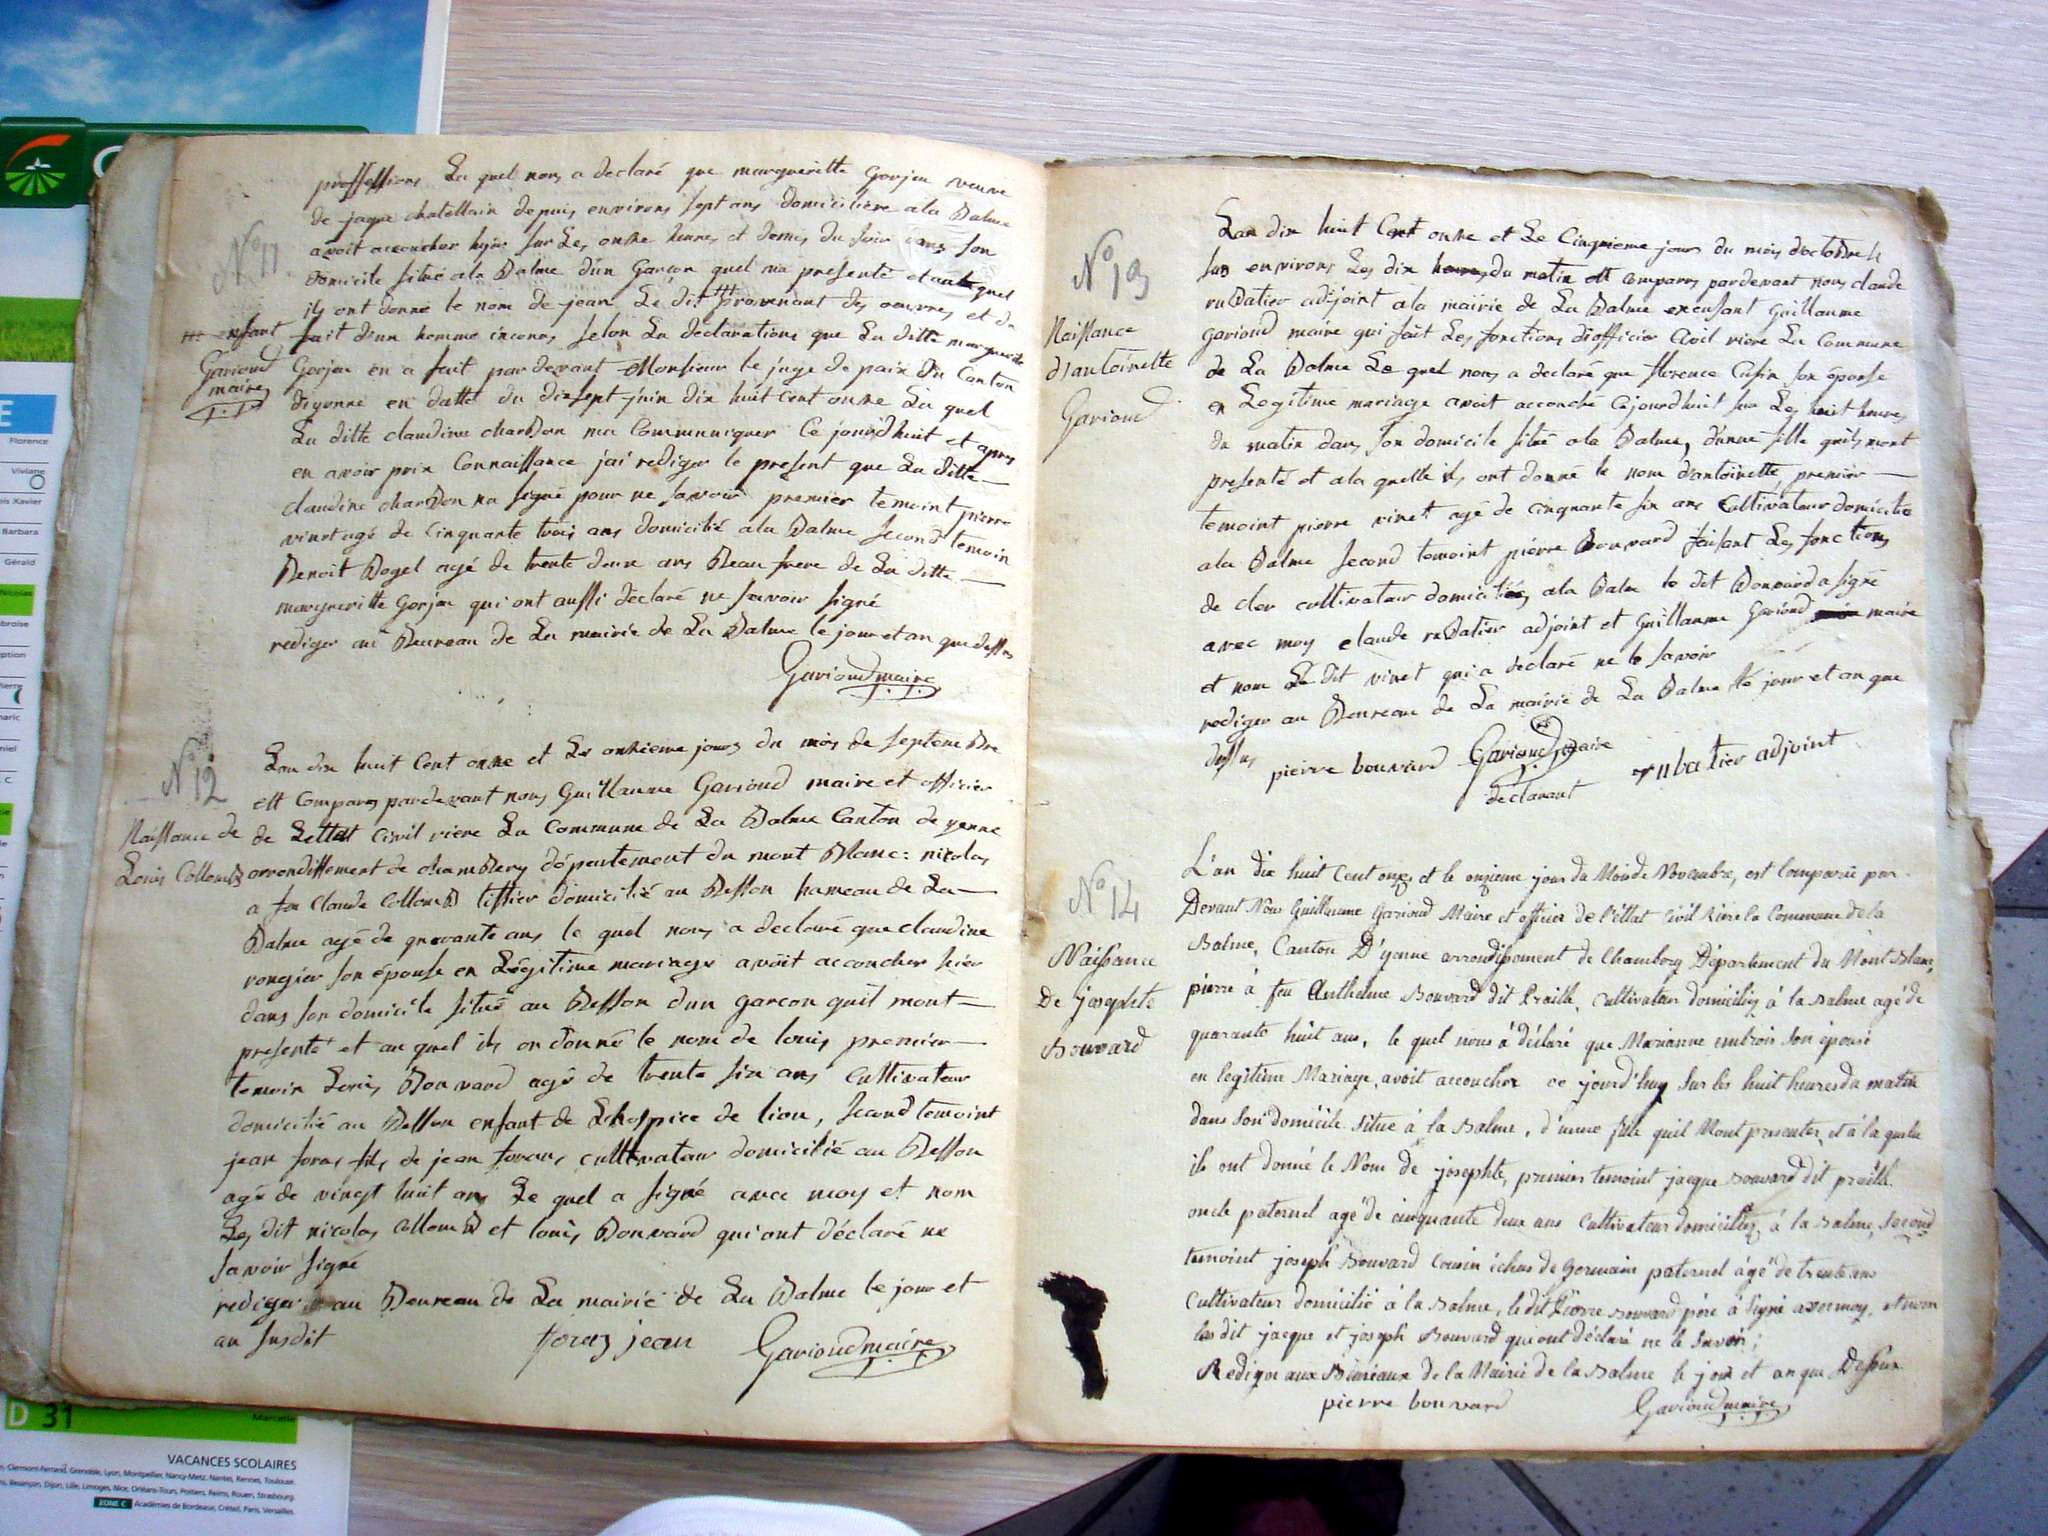 proffessions La quel nous a declaré que margueritte Gorjeu veuve
de jaque chatellain depuis environs sept ans domiciliére a la Balme
avoit accoucher hyer sur Les onhe heures et demis du soir dans son
N° 11
domicile situé a la Balme d'un Garçon quel ma presenté et auquel
ils ont donné le nom de jean Le dit provenant des oeuvres et du
enfant
fait d'un homme inconu selon La declarations que La ditte margueritte
Garioud
maire
Gorjeu en a fait pardevant Monsieur le juge de paix du Canton
d'yenne en datte du dixsept juin dix huit Cent onhe La quel
La ditte claudine charBon ma Communiquer Ce jourd'huit et apres
en avoir prix Connaissance j'ai rediger le present que La ditte
claudine charBon na signé pour ne savoir premier temoint pierre
vinet agé de Cinquante trois ans domicilié a la Balme second temoin
Benoit Bogel agé de trente deux ans Beau frere de La ditte
margueritte Gorjeu qui ont aussi déclaré ne savoir signé
rediger au Beureau de La mairie de La Balme le jour et an que dessus
Garioud maire
N° 12
Lan dix huit Cent onhe et Le onhieme jours du mois de septemBre
est Comparus pardevant nous Guillaume Garioud maire et officier
Naissance de
de Lettat Civil riere La Commune de La Balme Canton de yenne
Louis CollomB
arrondissement de chamBery département du mont Blanc: nicolas
a feu Claude CollomB tissier domicilié au Besson hameau de La
Balme agé de quarante ans le quel nous a declaré que claudine
rongier son épouse en Légitime mariage avoit accoucher hier
dans son domicile situé au Besson d'un garcon quil mont
presenté et au quel ils on donné le nom de louis premier
temoin Louis Bouvard agé de trente six ans Cultivateur
domicilié au Besson enfant de Lhospice de lion, second temoint
jean foras fils de jean foras cultivateur domicilié au Besson
agé de vingt huit ans Le quel a signé avec moy et nom
Les dit nicolas collomB et louis Bouvard qui ont déclaré ne
savoir signé
rediger au Beureau de La mairie de La Balme le jour et
an susdit
foraz jean
Garioud maire
N° 13
Lan dix huit Cent onhe et Le Cinquieme jour du mois d'octoBre
sur environs Les dix heures du matin est Comparus pardevant nous claude
ruBatier adjoint a la mairie de La Balme en
Guillaume
Naissance
d'antoinette
Garioud
Garioud maire qui fait Les fonctions d'officier Civil riere La Commune
de La Balme Le quel nous a declaré que florence Cusin son épouse
en Legitime mariage avoit accouché Cejourdhuit sur Les huit heures
du matin dans son domicile situé a la Balme, d'unne fille quils mont
presenté et a la quelle ils ont donné le nom d'antoinette, premier
temoint pierre vinet agé de cinquante six ans Cultivateur domicilié
a la Balme second temoint pierre Bouvard faisant Les fonctions
de cler cultivateur domicilié a la Balme le dit Bouvard a signé
avec moy claude ruBatier adjoint et Guillaume Garioud maire
et nom Le dit vinet qui a declaré ne le savoir
rediger au Beureau de La mairie de La Balme le jour et an que
dessus
pierre bouvard
Garioud maire
declarant
rubatier adjoint
N° 14
L'an dix huit Cent onze et le onzieme jour du Mois de Novembre, est Comparue par
Devant Nous Guillaume Garioud Maire et officier de l'ettat Civil Riere la Commune de la
Balme, Canton D'yenne arrondissement de Chambery Département du Mont Blanc,
Naissance
De josephte
Bouvard
pierre à feu Anthelme Bouvard dit Praille, Cultivateur domicilié à la Balme agé de
quarante huit ans, le quel nous à déclaré que Marianne son épouse
en legitime Mariage, avoit accoucher ce jourd'huy sur les huit heures du matin
dans son domicile situé à la Balme, d'unne fille quil Mont presenter, et à la quelle
ils ont donné le Nom de josephte, premier temoint jacque Bouvard dit praille
oncle paternel agé de cinquante deux ans Cultivateur domicilié à la Balme, Second
temoint joseph Bouvard Cousin de Germain paternel àgé de trente ans
Cultivateur domicilié à la Balme, le dit Pierre Bouvard père à signé avec moy, et non
les dit jacque et joseph Bouvard que ont déclaré ne le savoir;
Rediger aux Bureaux de la Mairie de la Balme le jour et an que Dessus
pierre bouvard
Garioud maire
Florence
Viviane
Barbara
Gérald
Nicolas
D 31
VACANCES SCOLAIRES
Clermont-Ferrand, Grenoble, Lyon, Montpellier, Nancy-Metz, Nantes, Rennes, Toulouse
Besançon, Dijon, Lille, Limoges, Nice, Orléans-Tours, Poitiers, Reims, Rouen, Strasbourg
ZONE C Académies de Bordeaux, Créteil, Paris, Versailles